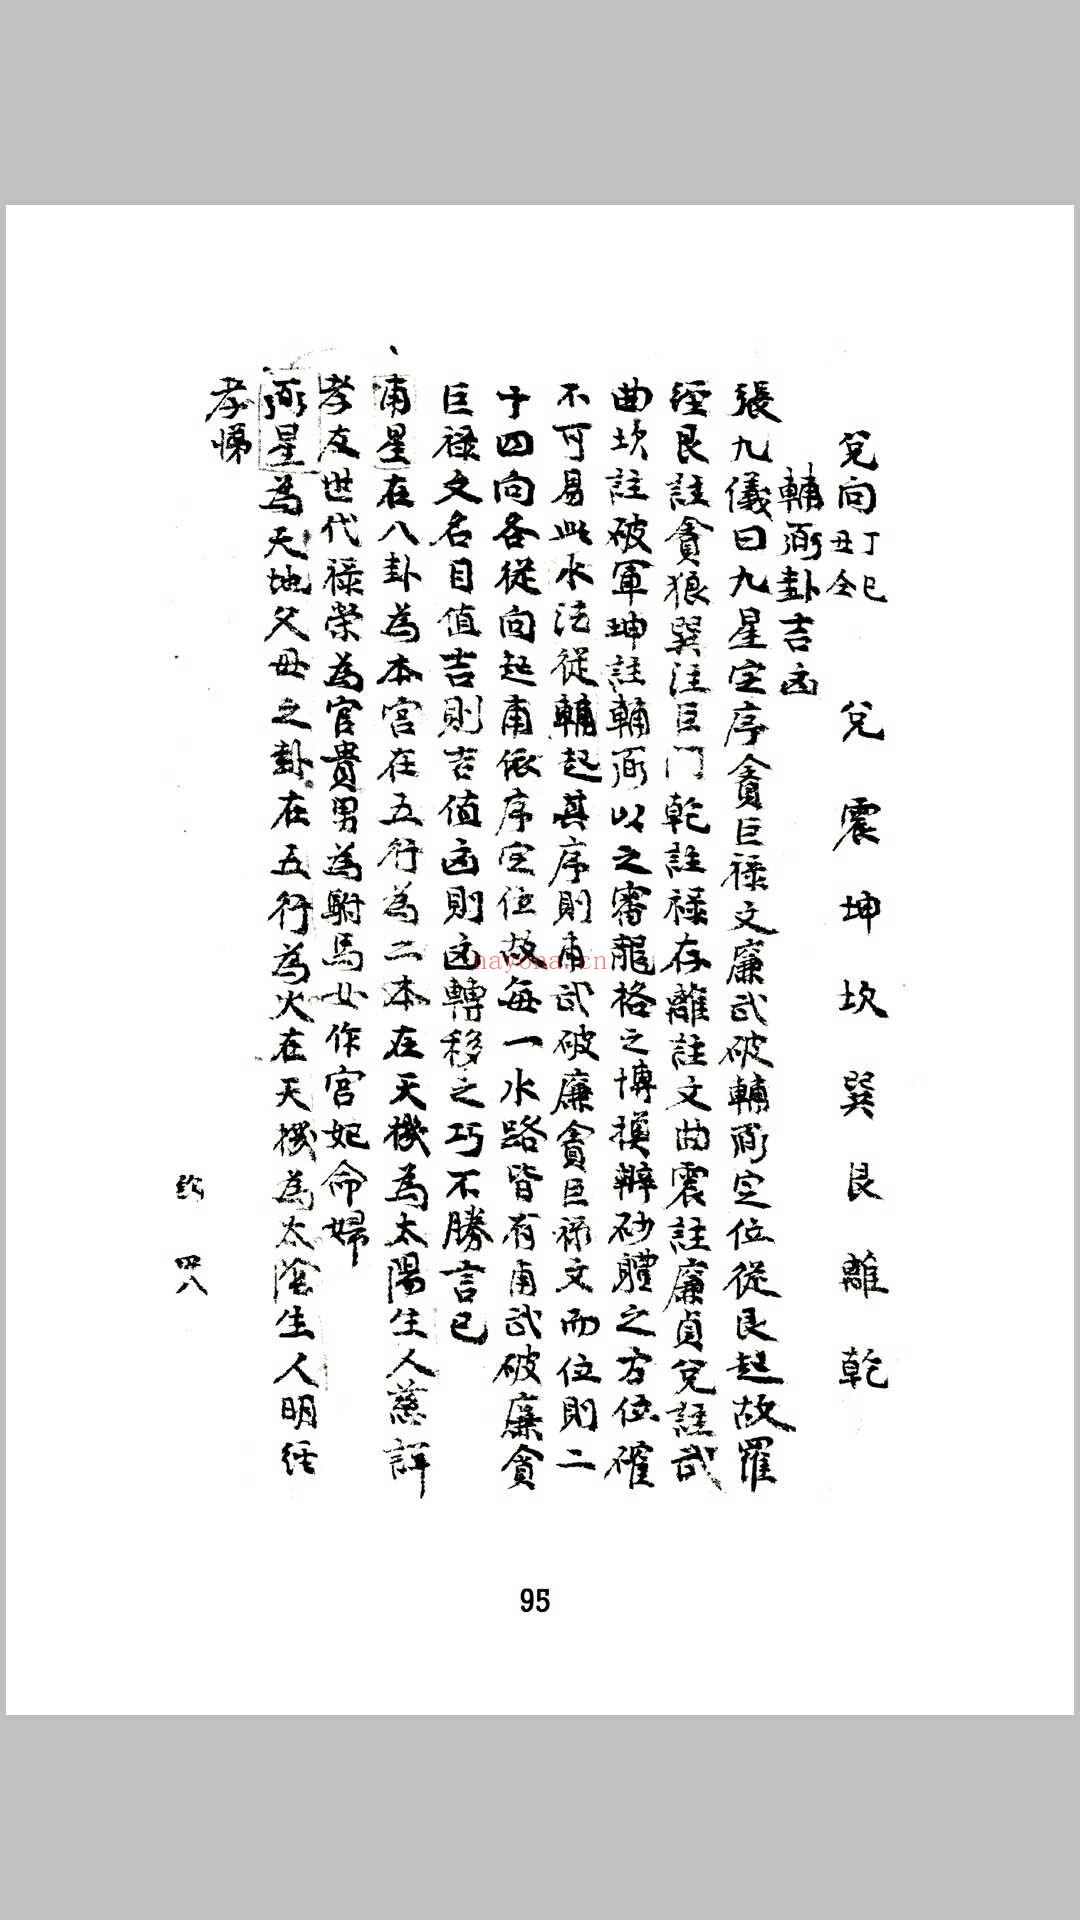 兌向丁巳丑仝 兌 震 坤 坎 巽 艮 離 乾
輔弼卦吉凶
張九儀曰九星定序貪巨祿文廉武破輔弼定位從艮起故羅
經艮註貪狼巽注巨門乾註祿存離註文曲震註廉貞兌註武
曲坎註破軍坤註輔弼以之審龍格之博換辦砂體之方位確
不可易此水法從輔起其序則甫武破廉貪巨祿文而位則二
十四向各從向起甫依序定位故每一水路皆有甫武破廉貪
巨祿文名目值吉則吉值凶則凶轉移之巧不勝言已
甫星在八卦為本宮在五行為二木在天機為太陽生人慈祥
孝友世代祿榮為官貴男為駙馬女作宮妃命婦
弼星為天地父母之卦在五行為火在天機為太陰生人明經
孝悌
四八
95
nayona.cn